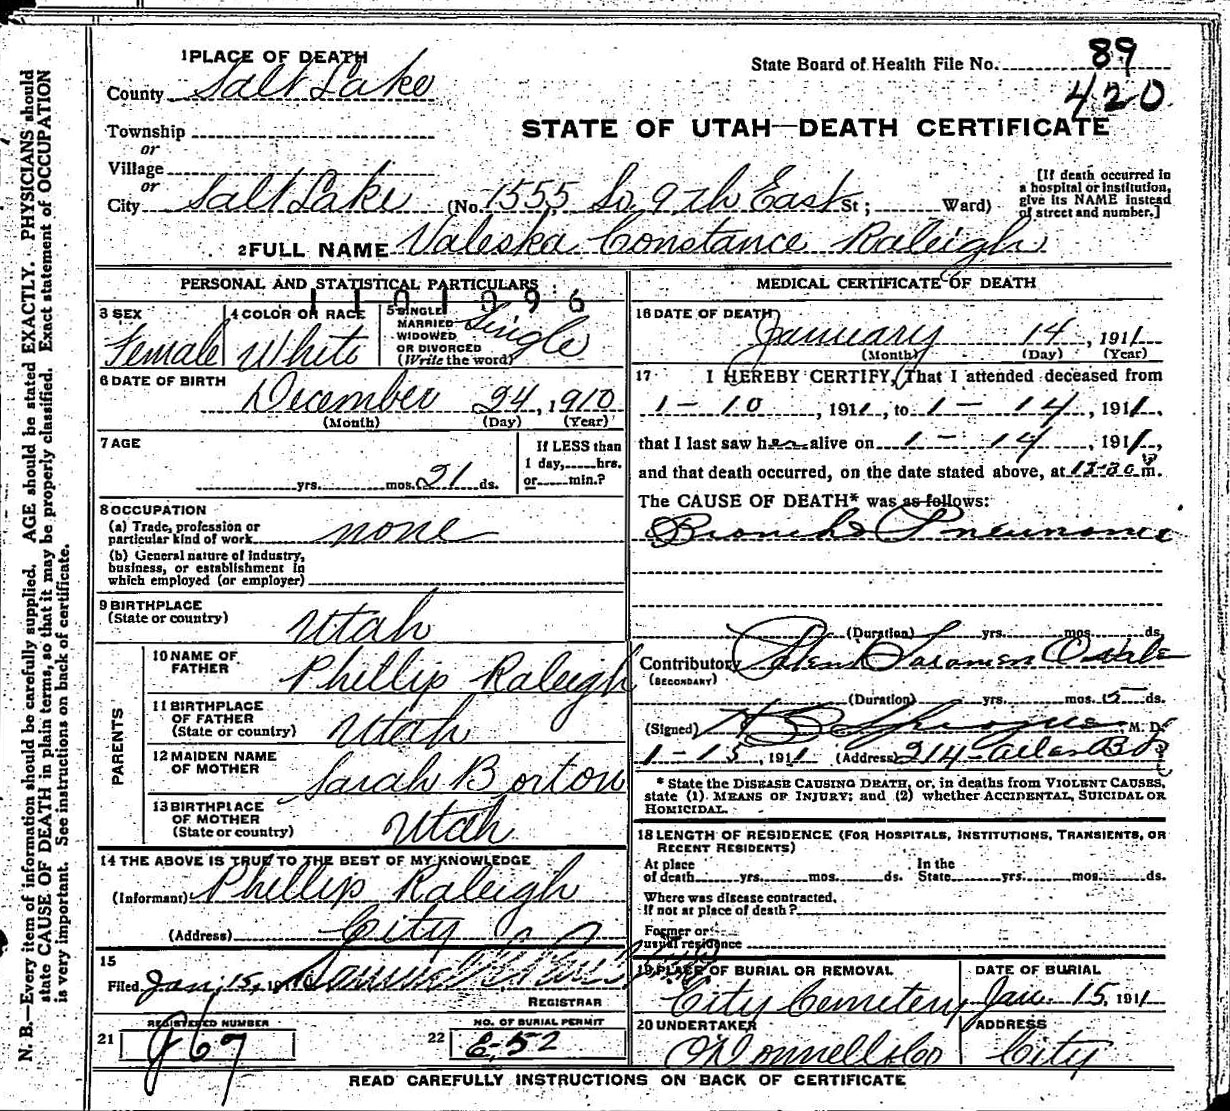 1 PLACE OF DEATH
County Salt Lake
State Board of Health File No. 89
420
STATE OF UTAH—DEATH CERTIFICATE
Township
or
Village
or
City Salt Lake (No. 1555 So 9th East St; Ward)
[If death occurred in
a hospital or institution,
give its NAME instead
of street and number.]
2 FULL NAME Valeska Constance Raleigh
PERSONAL AND STATISTICAL PARTICULARS
1101096
3 SEX
Female
4 COLOR OR RACE
White
5 SINGLE
MARRIED
WIDOWED
OR DIVORCED
(Write the word)
Single
6 DATE OF BIRTH
December 24, 1910
(Month) (Day) (Year)
7 AGE
yrs. mos. 21 ds.
If LESS than
1 day, hrs.
or min.?
8 OCCUPATION
(a) Trade, profession or
particular kind of work none
(b) General nature of industry,
business, or establishment in
which employed (or employer)
9 BIRTHPLACE
(State or country) Utah
PARENTS
10 NAME OF
FATHER Phillip Raleigh
11 BIRTHPLACE
OF FATHER
(State or country) Utah
12 MAIDEN NAME
OF MOTHER Sarah Borton
13 BIRTHPLACE
OF MOTHER
(State or country) Utah
14 THE ABOVE IS TRUE TO THE BEST OF MY KNOWLEDGE
(Informant) Phillip Raleigh
(Address) City
15
Filed Jan. 15, 191
REGISTRAR
21 REGISTERED NUMBER
g67
22 NO. OF BURIAL PERMIT
E-52
MEDICAL CERTIFICATE OF DEATH
16 DATE OF DEATH
January 14, 1911
(Month) (Day) (Year)
17 I HEREBY CERTIFY, That I attended deceased from
1-10, 1911, to 1-14, 1911,
that I last saw her alive on 1-14, 1911,
and that death occurred, on the date stated above, at m.
The CAUSE OF DEATH* was as follows:
Broncho Pneumonia
(Duration) yrs. mos. ds.
Contributory
(SECONDARY)
(Duration) yrs. mos. 5 ds.
(Signed) M. D.
1-15, 1911 (Address) 214
* State the DISEASE CAUSING DEATH, or, in deaths from VIOLENT CAUSES,
state (1) MEANS OF INJURY; and (2) whether ACCIDENTAL, SUICIDAL OR
HOMICIDAL.
18 LENGTH OF RESIDENCE (FOR HOSPITALS, INSTITUTIONS, TRANSIENTS, OR
RECENT RESIDENTS)
At place
of death yrs. mos. ds.
In the
State yrs. mos. ds.
Where was disease contracted,
if not at place of death?
Former or
usual residence
19 PLACE OF BURIAL OR REMOVAL
City Cemetery
DATE OF BURIAL
Jan. 15, 1911
20 UNDERTAKER
O'Donnell & Co
ADDRESS
City
READ CAREFULLY INSTRUCTIONS ON BACK OF CERTIFICATE
N. B.—Every item of information should be carefully supplied. AGE should be stated EXACTLY. PHYSICIANS should
state CAUSE OF DEATH in plain terms, so that it may be properly classified. Exact statement of OCCUPATION
is very important. See instructions on back of certificate.